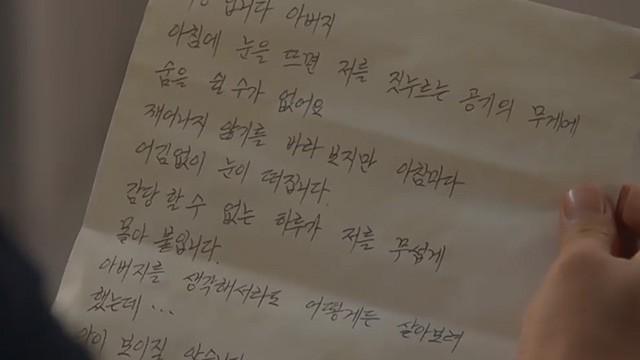 합니다 아버지
아침에 눈을 뜨면 저를 짓누르는 공기의 무게에
숨을 쉴 수가 없어요
깨어나지 않기를 바라 보지만 아침마다
어김없이 눈이 떠집니다.
감당 할 수 없는 하루가 저를 무섭게
몰아 붙입니다.
아버지를 생각해서라도 어떻게든 살아보려
했는데...
보이질 않습니다